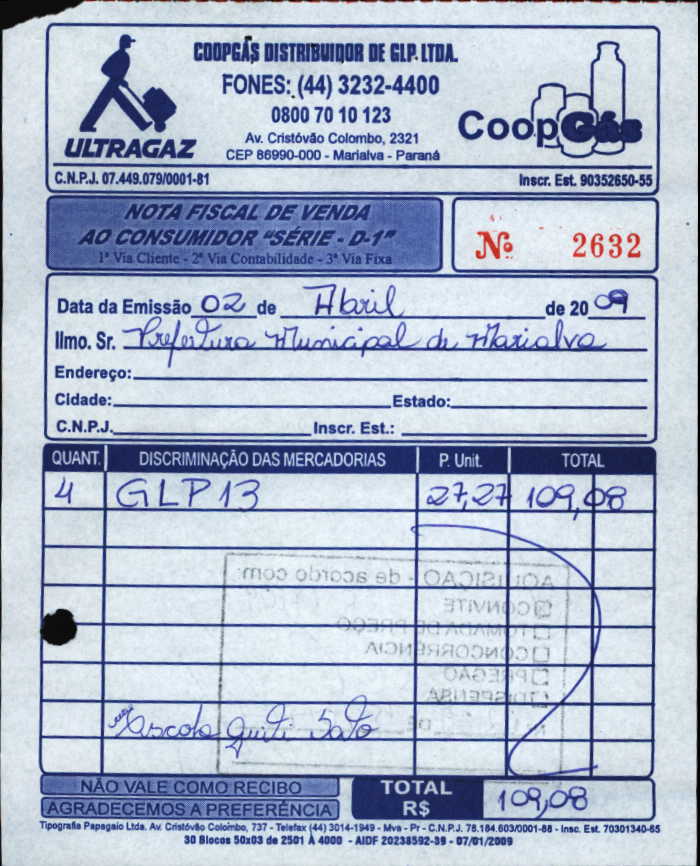 COOPGÁS DISTRIBUIDOR DE GLP LTDA.
FONES: (44) 3232-4400
0800 70 10 123
Av. Cristóvão Colombo, 2321
CEP 86990-000 - Marialva - Paraná
ULTRAGAZ
CoopGás
C.N.P.J. 07.449.079/0001-81
Inscr. Est. 90352650-55
NOTA FISCAL DE VENDA
AO CONSUMIDOR "SÉRIE - D-1"
1ª Via Cliente - 2ª Via Contabilidade - 3ª Via Fixa
Nº 2632
Data da Emissão 02 de Abril de 2009
Ilmo. Sr. Prefeitura Municipal de Marialva
Endereço:
Cidade: Estado:
C.N.P.J. Inscr. Est.:
QUANT. DISCRIMINAÇÃO DAS MERCADORIAS P. Unit. TOTAL
4 GLP 13 27,27 109,08
AQUISIÇÃO - de acordo com:
CONVITE
TOMADA DE PREÇO
CONCORRÊNCIA
PREGÃO
DISPENSA
Escola
NÃO VALE COMO RECIBO
AGRADECEMOS A PREFERÊNCIA
TOTAL
R$
109,08
Tipografia Papagaio Ltda. Av. Cristóvão Colombo, 737 - Telefax (44) 3014-1949 - Mva - Pr - C.N.P.J. 78.184.603/0001-88 - Insc. Est. 70301340-65
30 Blocos 50x03 de 2501 À 4000 - AIDF 20238592-39 - 07/01/2009